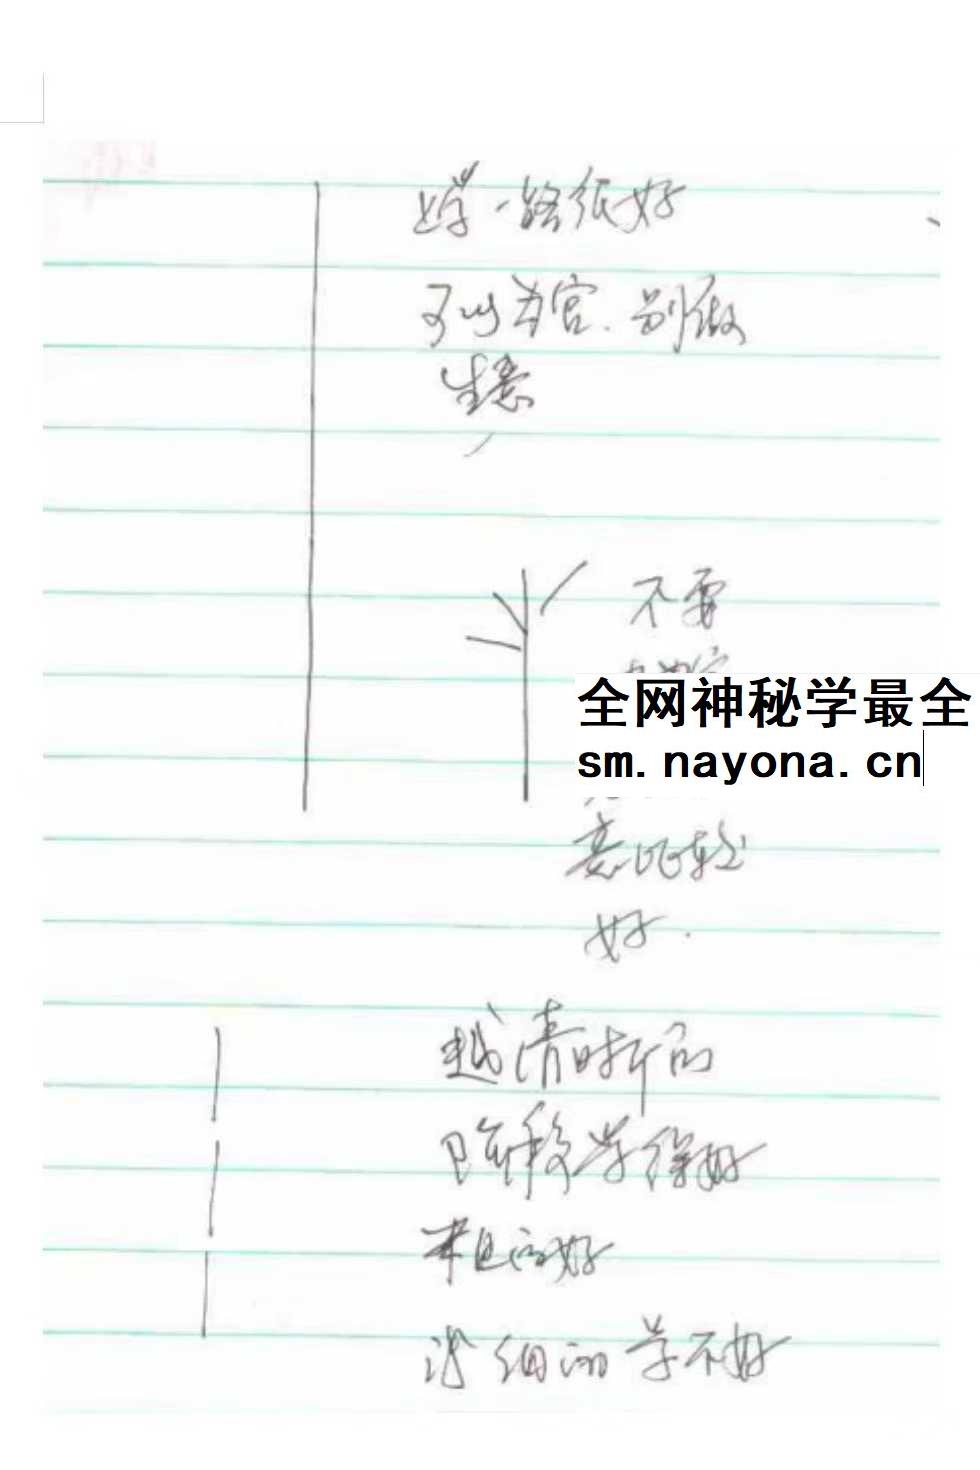 一路很好
可以当官.别做
生意
不要
全网神秘学最全
sm.nayona.cn
意比较
好.
越清晰的
学得好
粗的好
细的学不好